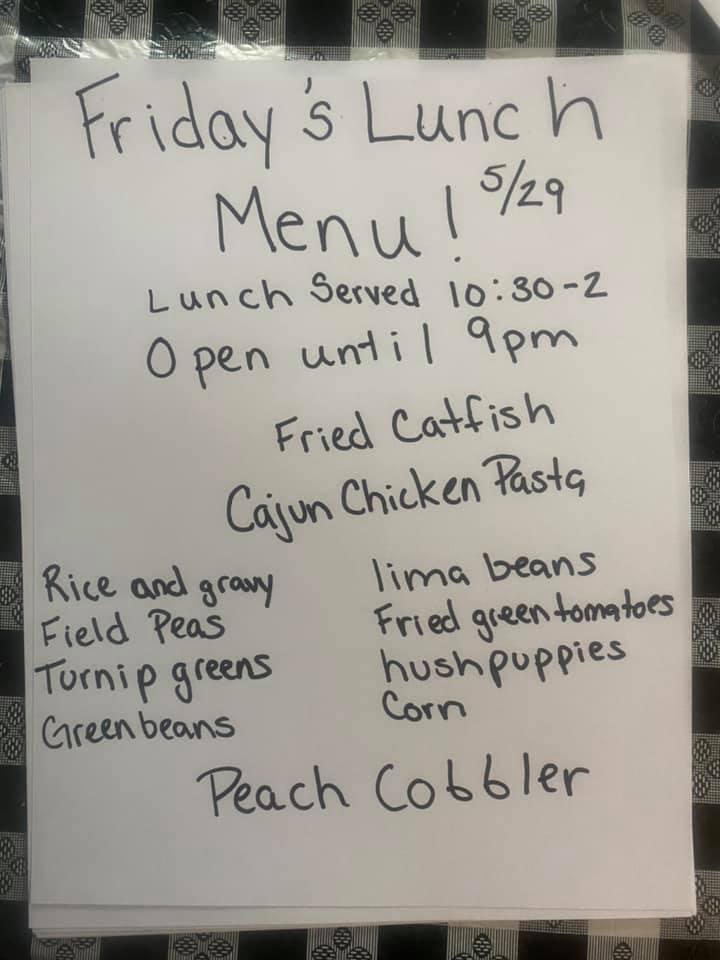 Friday's Lunch
Menu! 5/29
Lunch Served 10:30-2
Open until 9pm
Fried Catfish
Cajun Chicken Pasta
Rice and gravy
Field Peas
Turnip greens
Green beans
lima beans
Fried green tomatoes
hushpuppies
Corn
Peach Cobbler